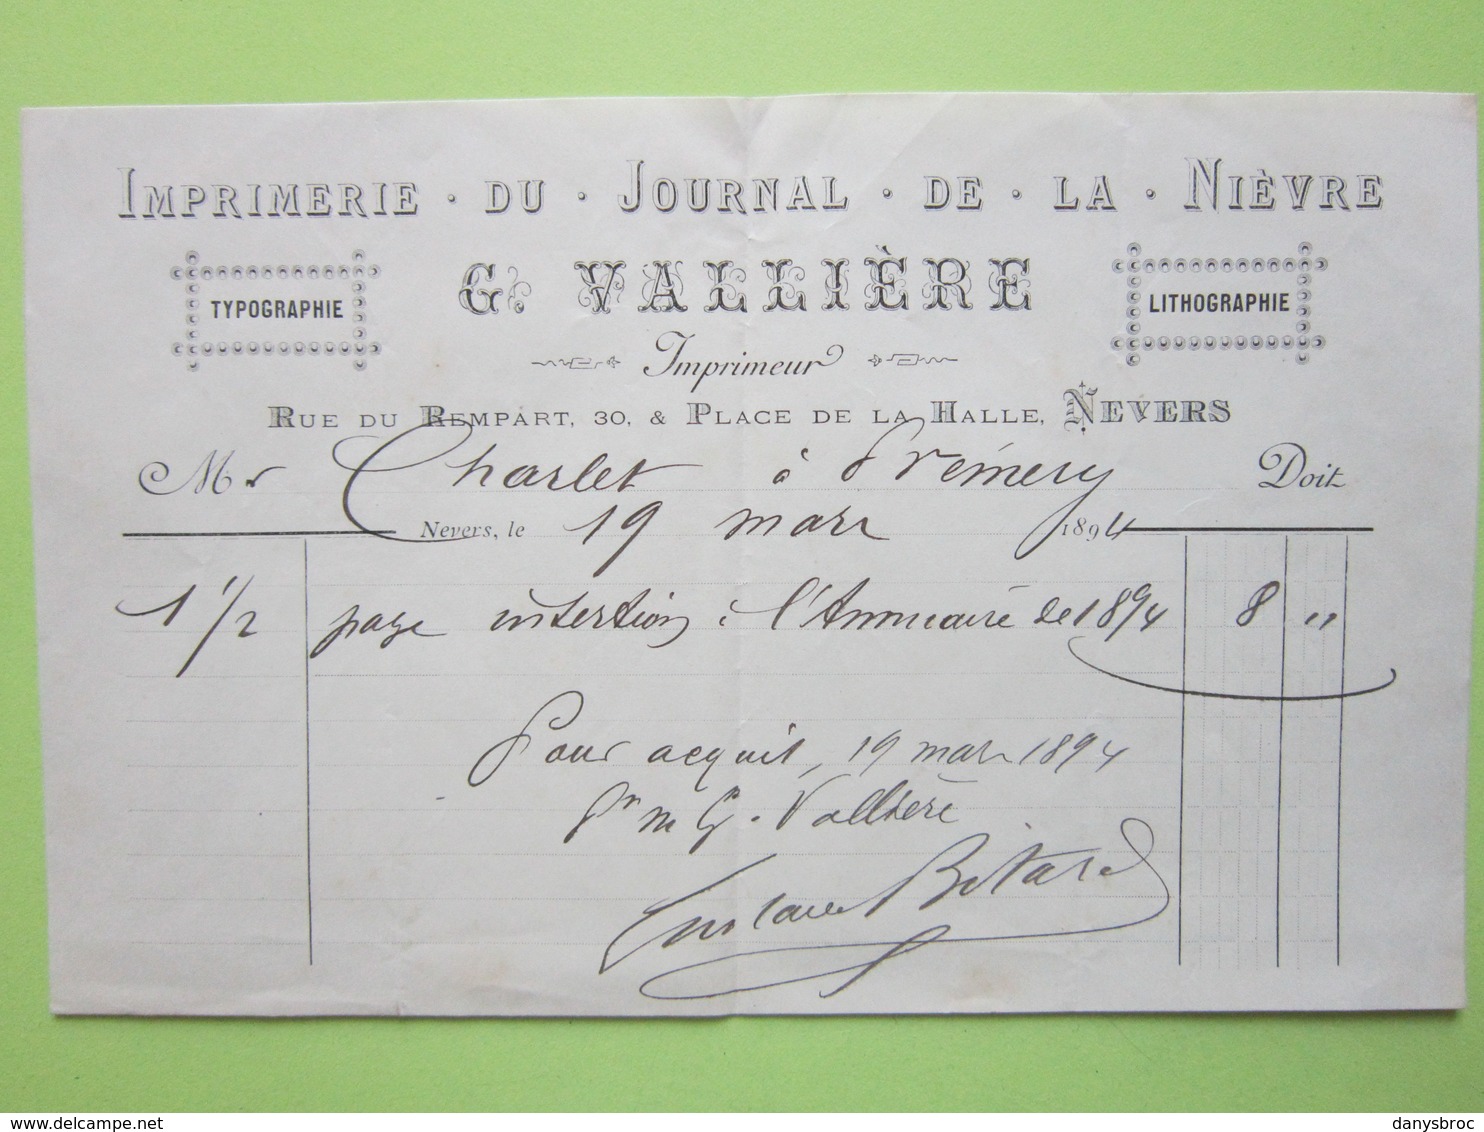 IMPRIMERIE · DU · JOURNAL · DE · LA · NIÈVRE
TYPOGRAPHIE
G. VALLIÈRE
LITHOGRAPHIE
Imprimeur
RUE DU REMPART, 30, & PLACE DE LA HALLE, NEVERS
Mr Charlet à Prémery Doit
Nevers, le 19 mars 1894
1 1/2 page insertion à l'Annuaire de 1894 8 "
Pour acquit, 19 mars 1894
Pr M G. Vallière
delcampe.net
danysbroc